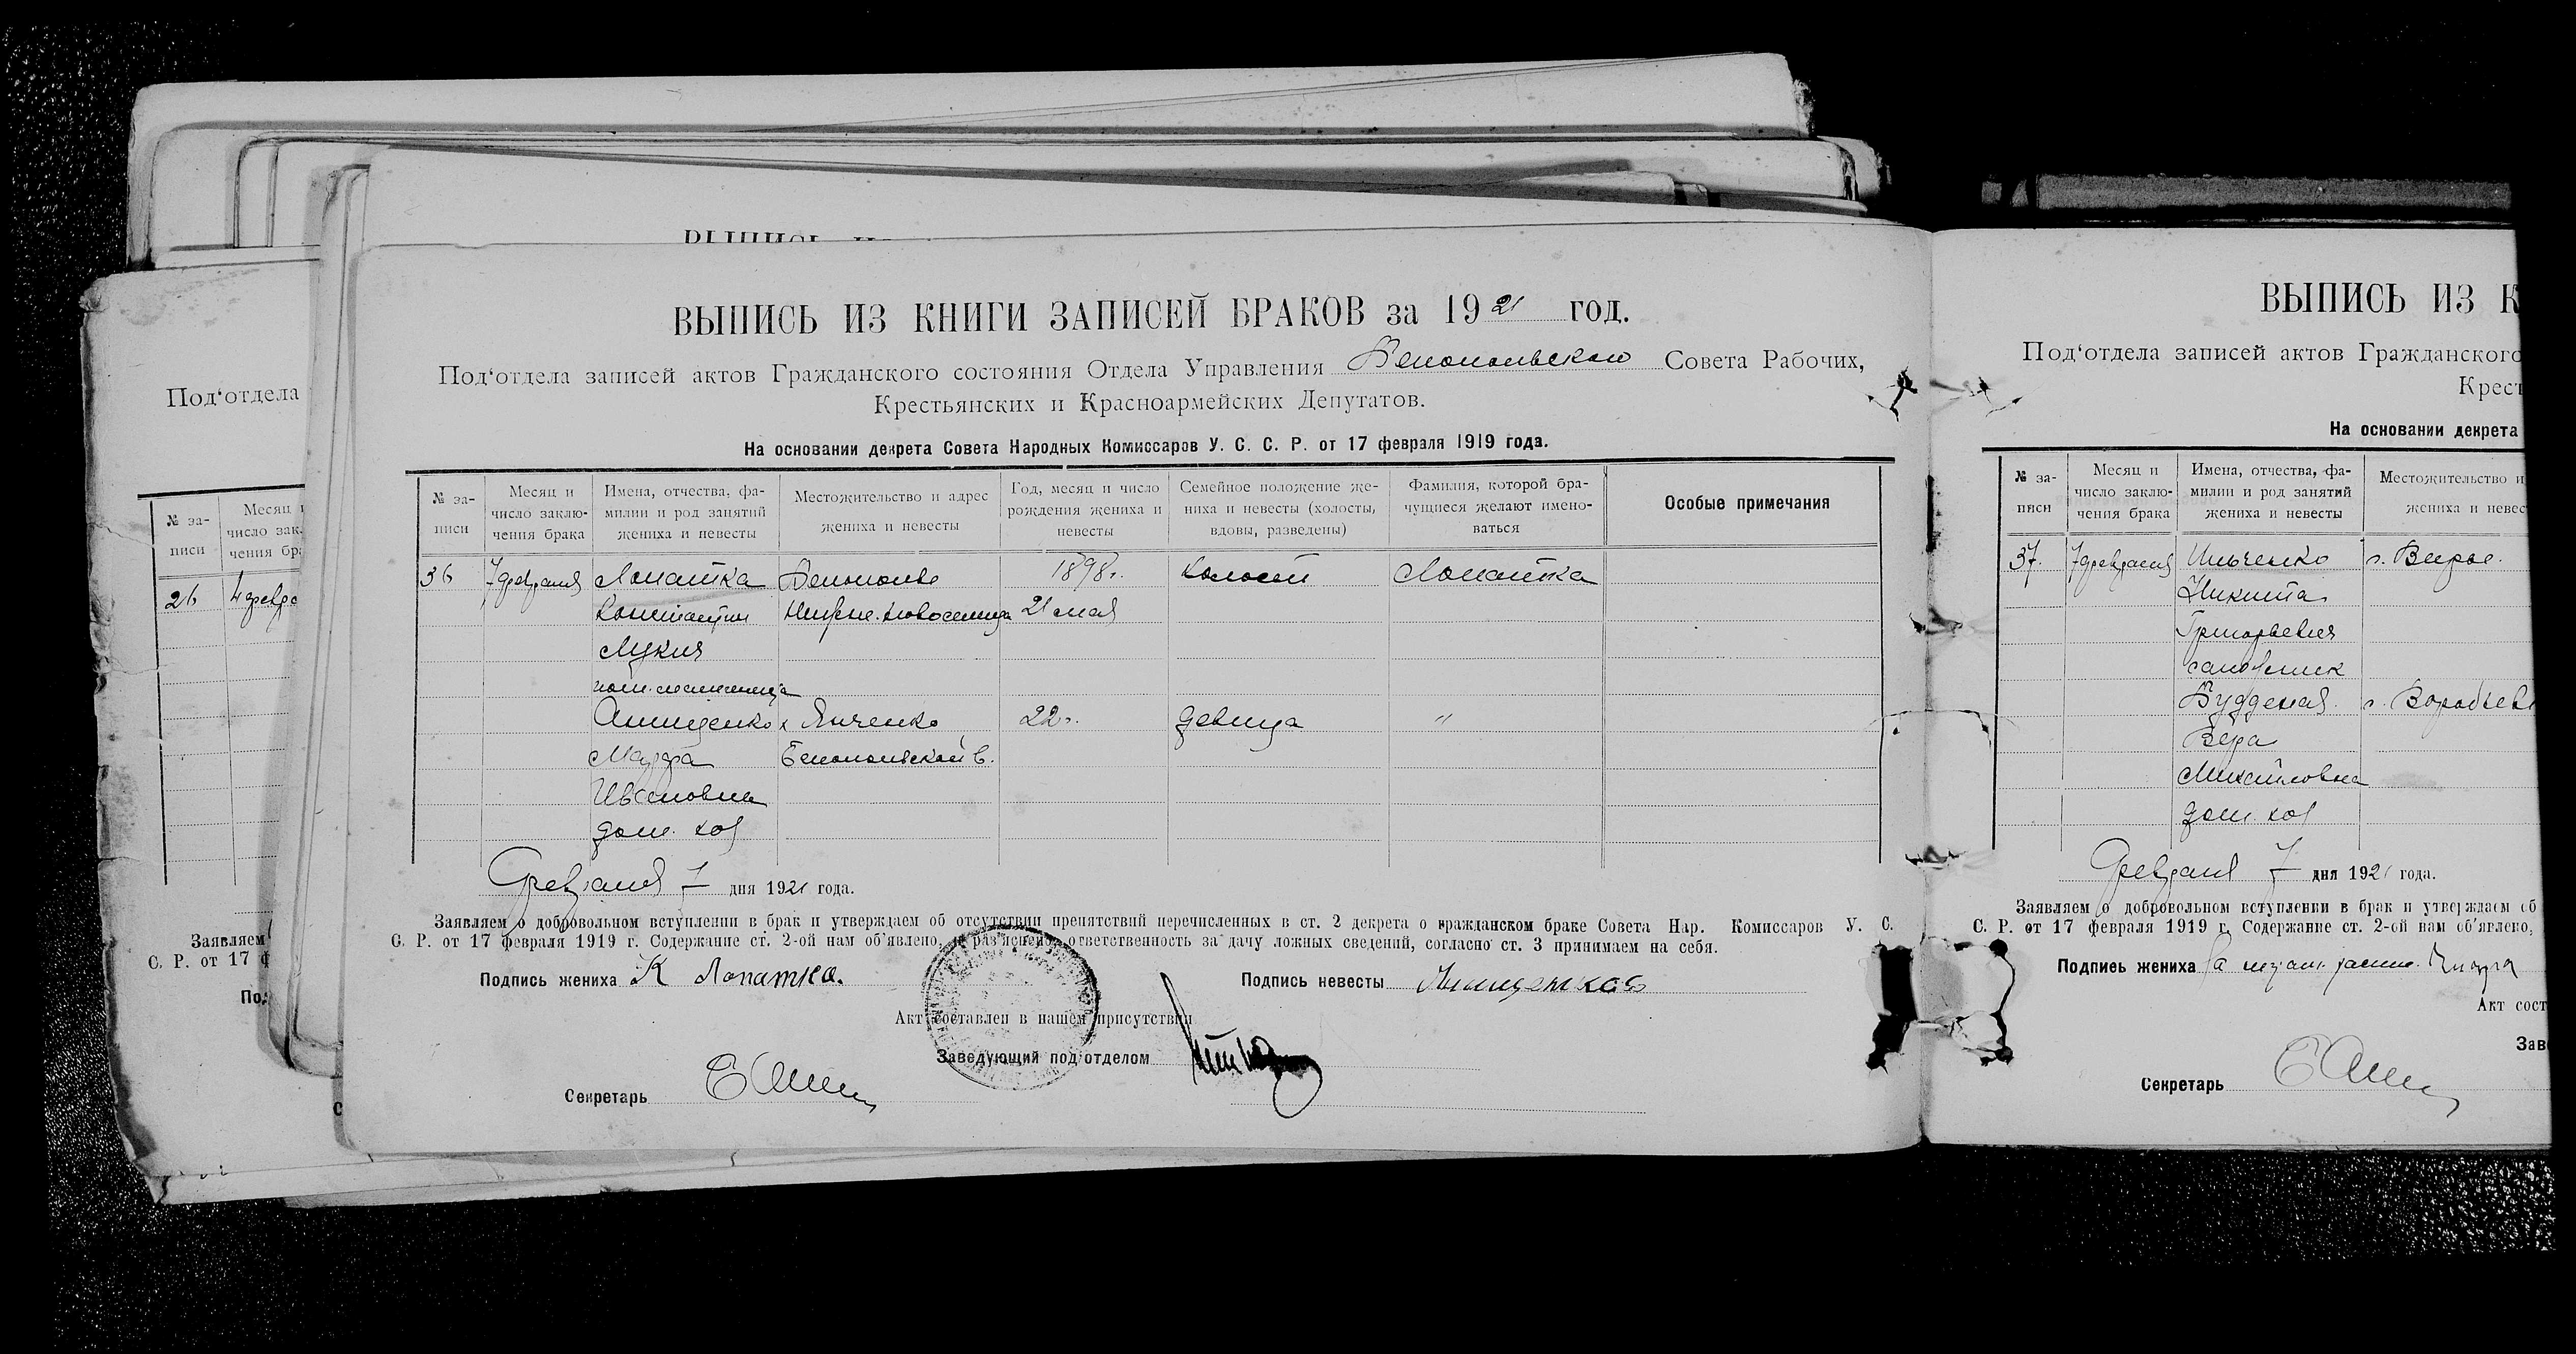 ВЫПИСЬ ИЗ КНИГИ ЗАПИСЕЙ БРАКОВ за 1921 год.
Под‘отдела записей актов Гражданского состояния Отдела Управления Белопольского Совета Рабочих,
Крестьянских и Красноармейских Депутатов.
На основании декрета Совета Народных Комиссаров У. С. С. Р. от 17 февраля 1919 года.
№ за-
писи
Месяц и
число заклю-
чения брака
Имена, отчества, фа-
милии и род занятий
жениха и невесты
Местожительство и адрес
жениха и невесты
Год, месяц и число
рождения жениха и
невесты
Семейное положение же-
ниха и невесты (холосты,
вдовы, разведены)
Фамилия, которой бра-
чущиеся желают имено-
ваться
Особые примечания
36 7 февраля Лопатка Белополье 1898 г. холост Лопатка
Константин 21 мая
Лукич
Анищенко х. Янченко 22 г. девица "
Марфа Белопольской в.
Ивановна
дом. хоз
Февраля 7 дня 1921 года.
Заявляем о добровольном вступлении в брак и утверждаем об отсутствии препятствий перечисленных в ст. 2 декрета о гражданском браке Совета Нар. Комиссаров У. С.
С. Р. от 17 февраля 1919 г. Содержание ст. 2-ой нам об‘явлено, и раз‘яснено, ответственность за дачу ложных сведений, согласно ст. 3 принимаем на себя.
Подпись жениха К Лопатка.
Подпись невесты
Акт составлен в нашем присутствии
Заведующий под‘отделом
Секретарь
Под‘отдела
№ за-
писи
Месяц
число зак
чения бр
26 4 февра
Заявляем
С. Р. от 17 ф
По
ВЫПИСЬ ИЗ К
Под‘отдела записей актов Гражданского
Крест
На основании декрета
№ за-
писи
Месяц и
число заклю-
чения брака
Имена, отчества, фа-
милии и род занятий
жениха и невесты
Местожительство и
жениха и невес
37. 7 февраля Ильченко с. Вирое.
Никита
Григорьевич
сапожник
Будденая. с. Воробьев
Вера
Михайловна
дом. хоз
Февраля 7 дня 1921 года.
Заявляем о добровольном вступлении в брак и утверждаем об
С. Р. от 17 февраля 1919 г. Содержание ст. 2-ой нам об‘явлено,
Подпись жениха
Акт сост
Зав
Секретарь